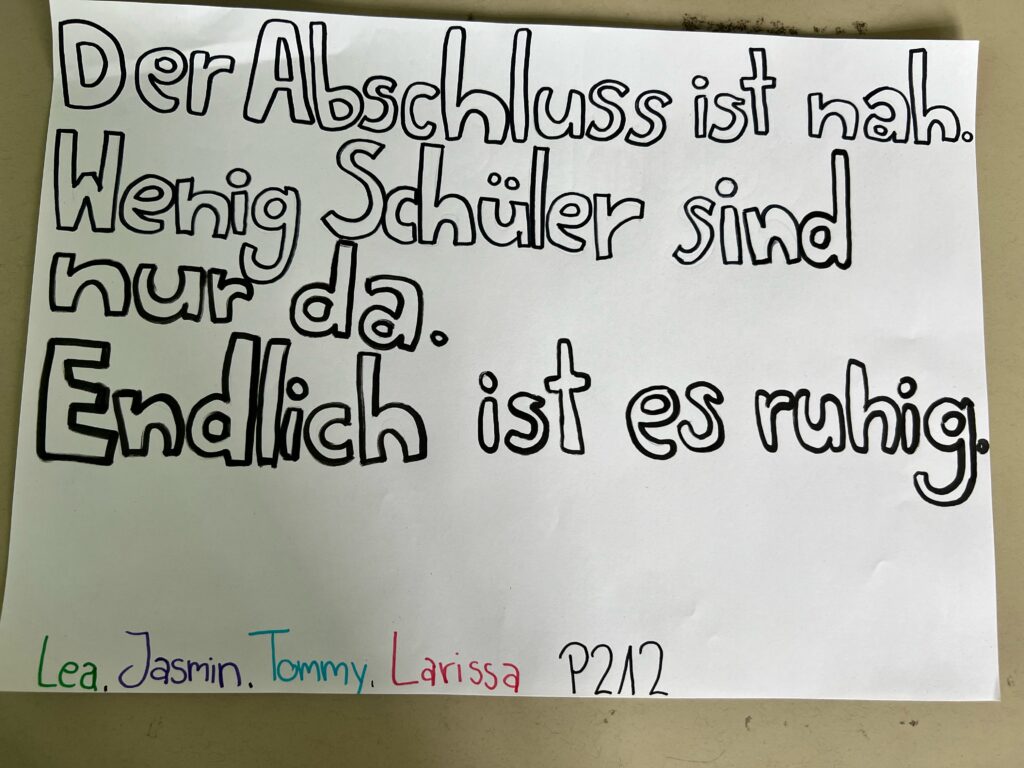 Der Abschluss ist nah.
Wenig Schüler sind
nur da.
Endlich ist es ruhig.
Lea. Jasmin. Tommy. Larissa P212